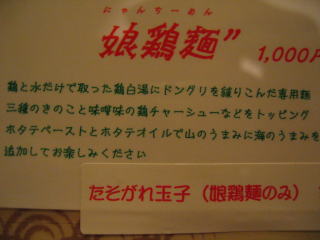 にゃんちーめん
娘鶏麺”
1,000円
鶏と水だけで取った鶏白湯にドングリを練りこんだ専用麺
三種のきのこと味噌味の鶏チャーシューなどをトッピング
ホタテペーストとホタテオイルで山のうまみに海のうまみを
追加してお楽しみください
たそがれ玉子（娘鶏麺のみ）